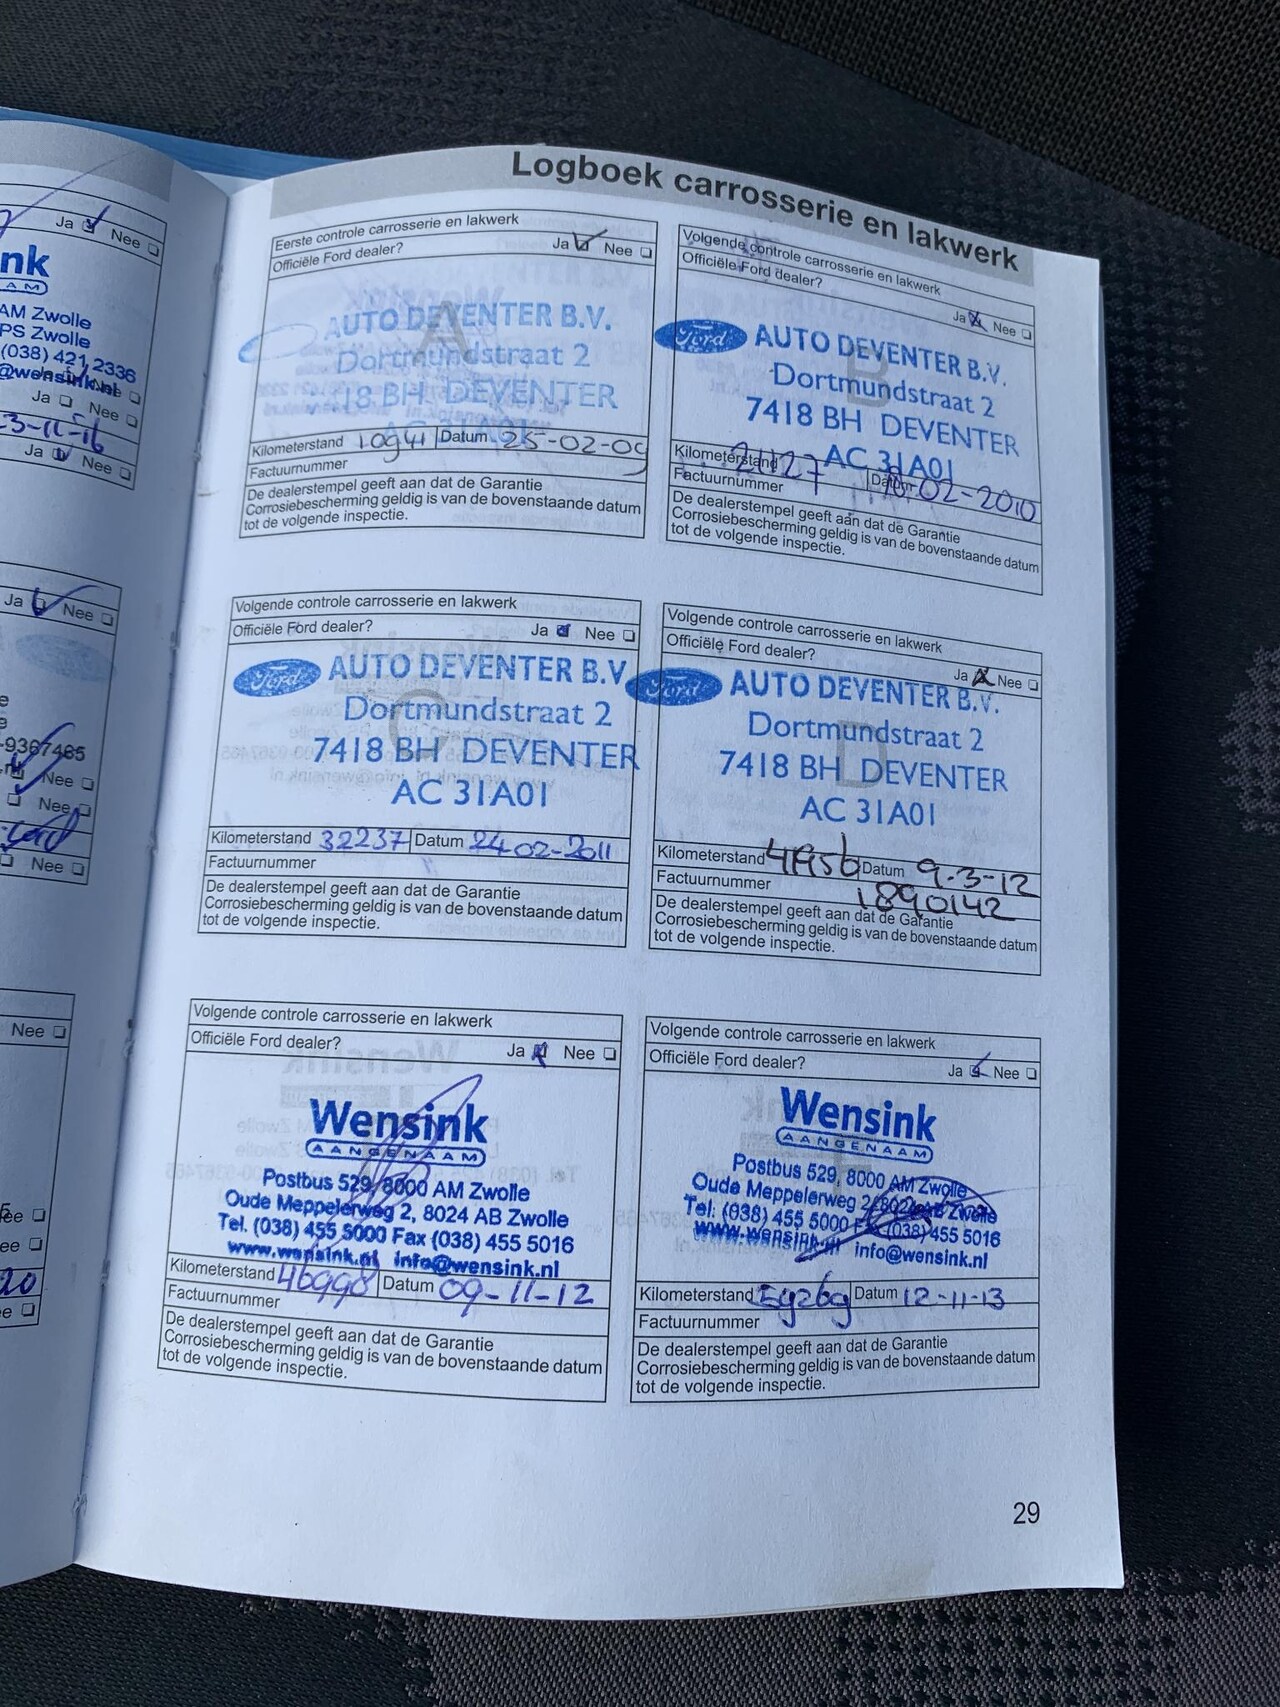 Logboek carrosserie en lakwerk
Eerste controle carrosserie en lakwerk
Officiële Ford dealer? Ja Nee
A
AUTO DEVENTER B.V.
Dortmundstraat 2
7418 BH DEVENTER
AC 31A01
Kilometerstand 10941 Datum 25-02-09
Factuurnummer
De dealerstempel geeft aan dat de Garantie
Corrosiebescherming geldig is van de bovenstaande datum
tot de volgende inspectie.
Volgende controle carrosserie en lakwerk
Officiële Ford dealer?
Ja Nee
B
Ford AUTO DEVENTER B.V.
Dortmundstraat 2
7418 BH DEVENTER
AC 31A01
Kilometerstand 21127 Datum 18-02-2010
Factuurnummer
De dealerstempel geeft aan dat de Garantie
Corrosiebescherming geldig is van de bovenstaande datum
tot de volgende inspectie.
Volgende controle carrosserie en lakwerk
Officiële Ford dealer? Ja Nee
C
Ford AUTO DEVENTER B.V.
Dortmundstraat 2
7418 BH DEVENTER
AC 31A01
Kilometerstand 32237 Datum 24-02-2011
Factuurnummer
De dealerstempel geeft aan dat de Garantie
Corrosiebescherming geldig is van de bovenstaande datum
tot de volgende inspectie.
Volgende controle carrosserie en lakwerk
Officiële Ford dealer?
Ja Nee
D
Ford AUTO DEVENTER B.V.
Dortmundstraat 2
7418 BH DEVENTER
AC 31A01
Kilometerstand Datum 9-3-12
Factuurnummer 1890142
De dealerstempel geeft aan dat de Garantie
Corrosiebescherming geldig is van de bovenstaande datum
tot de volgende inspectie.
Volgende controle carrosserie en lakwerk
Officiële Ford dealer? Ja Nee
Wensink
AANGENAAM
Postbus 529, 8000 AM Zwolle
Oude Meppelerweg 2, 8024 AB Zwolle
Tel. (038) 455 5000 Fax (038) 455 5016
www.wensink.nl info@wensink.nl
Kilometerstand 46998 Datum 09-11-12
Factuurnummer
De dealerstempel geeft aan dat de Garantie
Corrosiebescherming geldig is van de bovenstaande datum
tot de volgende inspectie.
Volgende controle carrosserie en lakwerk
Officiële Ford dealer? Ja Nee
Wensink
AANGENAAM
Postbus 529, 8000 AM Zwolle
Oude Meppelerweg 2, 8024 AB Zwolle
Tel: (038) 455 5000 Fax (038) 455 5016
www.wensink.nl info@wensink.nl
Kilometerstand Datum 12-11-13
Factuurnummer
De dealerstempel geeft aan dat de Garantie
Corrosiebescherming geldig is van de bovenstaande datum
tot de volgende inspectie.
29
Ja Nee
nk
AM
AM Zwolle
PS Zwolle
(038) 421 2336
@wensink.nl
Ja Nee
Ja Nee
Ja Nee
-9367465
Nee
Nee
Nee
Nee
Nee
20